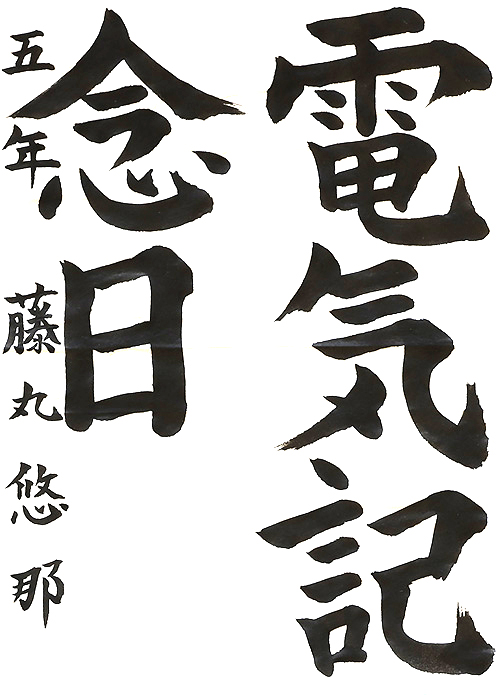 電気記
念日
五年 藤丸悠那